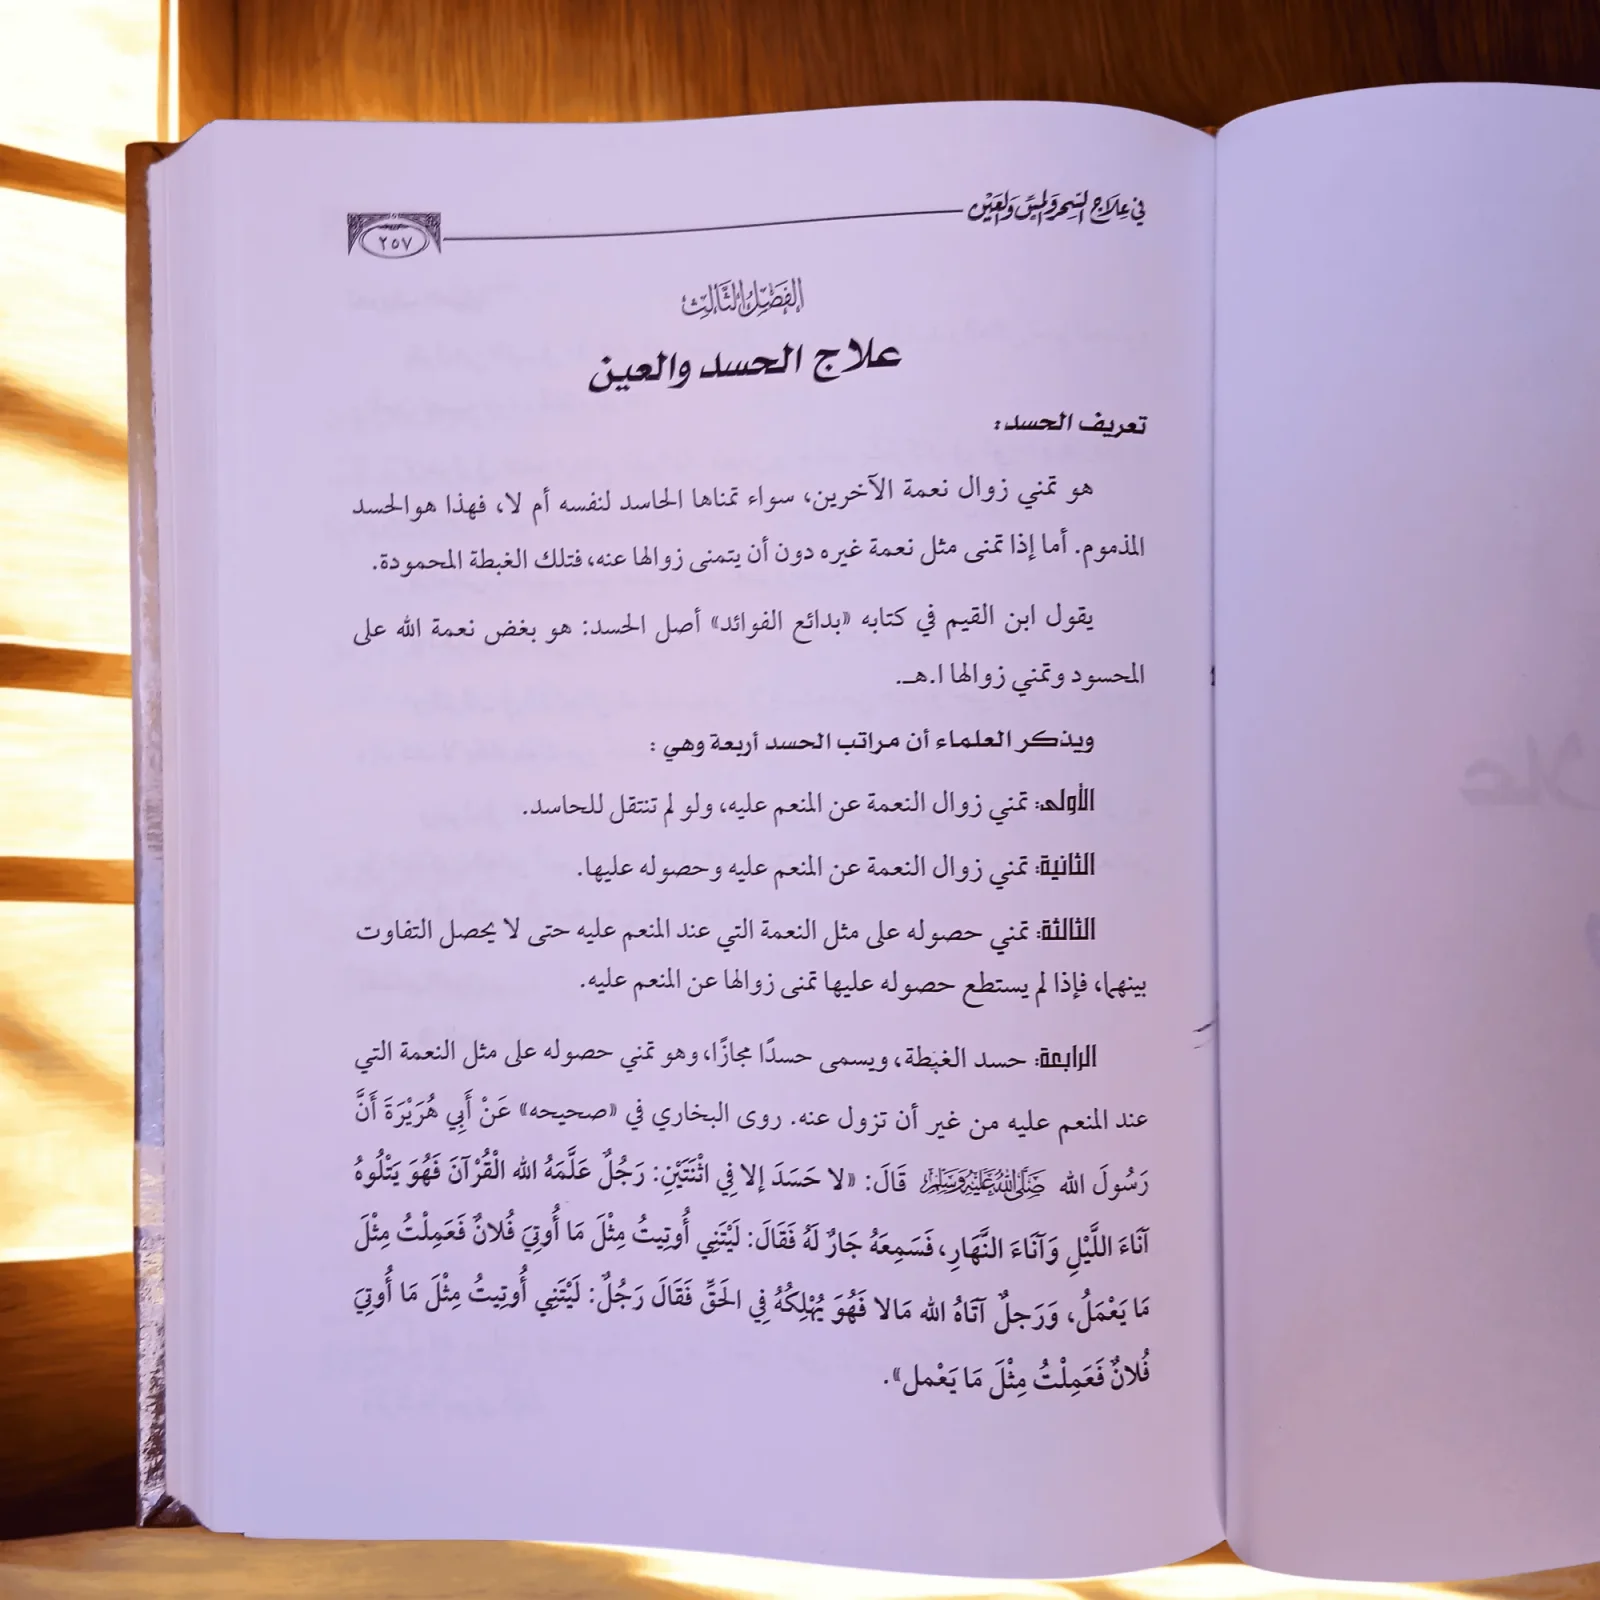 في علاج السحر والمس والعين
٢٥٧
الفصل الثالث
علاج الحسد والعين
تعريف الحسد:
هو تمني زوال نعمة الآخرين، سواء تمناها الحاسد لنفسه أم لا، فهذا هو الحسد
المذموم. أما إذا تمنى مثل نعمة غيره دون أن يتمنى زوالها عنه، فتلك الغبطة المحمودة.
يقول ابن القيم في كتابه «بدائع الفوائد» أصل الحسد: هو بغض نعمة الله على
المحسود وتمني زوالها ا.هـ.
ويذكر العلماء أن مراتب الحسد أربعة وهي :
الأولى: تمني زوال النعمة عن المنعم عليه، ولو لم تنتقل للحاسد.
الثانية: تمني زوال النعمة عن المنعم عليه وحصوله عليها.
الثالثة: تمني حصوله على مثل النعمة التي عند المنعم عليه حتى لا يحصل التفاوت
بينهما، فإذا لم يستطع حصوله عليها تمنى زوالها عن المنعم عليه.
الرابعة: حسد الغبطة، ويسمى حسدًا مجازًا، وهو تمني حصوله على مثل النعمة التي
عند المنعم عليه من غير أن تزول عنه. روى البخاري في «صحيحه» عَنْ أَبِي هُرَيْرَةَ أَنَّ
رَسُولَ الله ﷺ قَالَ: «لا حَسَدَ إلا فِي اثْنَتَيْنِ: رَجُلٌ عَلَّمَهُ الله الْقُرْآنَ فَهُوَ يَتْلُوهُ
آنَاءَ اللَّيْلِ وَآنَاءَ النَّهَارِ، فَسَمِعَهُ جَارٌ لَهُ فَقَالَ: لَيْتَنِي أُوتِيتُ مِثْلَ مَا أُوتِيَ فُلانٌ فَعَمِلْتُ مِثْلَ
مَا يَعْمَلُ، وَرَجلٌ آتَاهُ الله مَالا فَهُوَ يُهْلِكُهُ فِي الحَقِّ فَقَالَ رَجُلٌ: لَيْتَنِي أُوتِيتُ مِثْلَ مَا أُوتِيَ
فُلانٌ فَعَمِلْتُ مِثْلَ مَا يَعْمل».